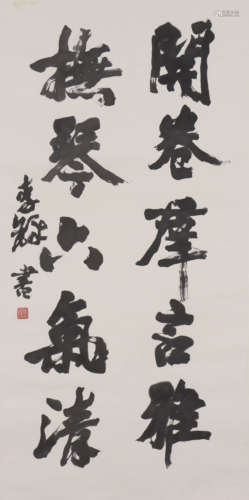 開卷群言雅
撫琴六氣清
李鐸書